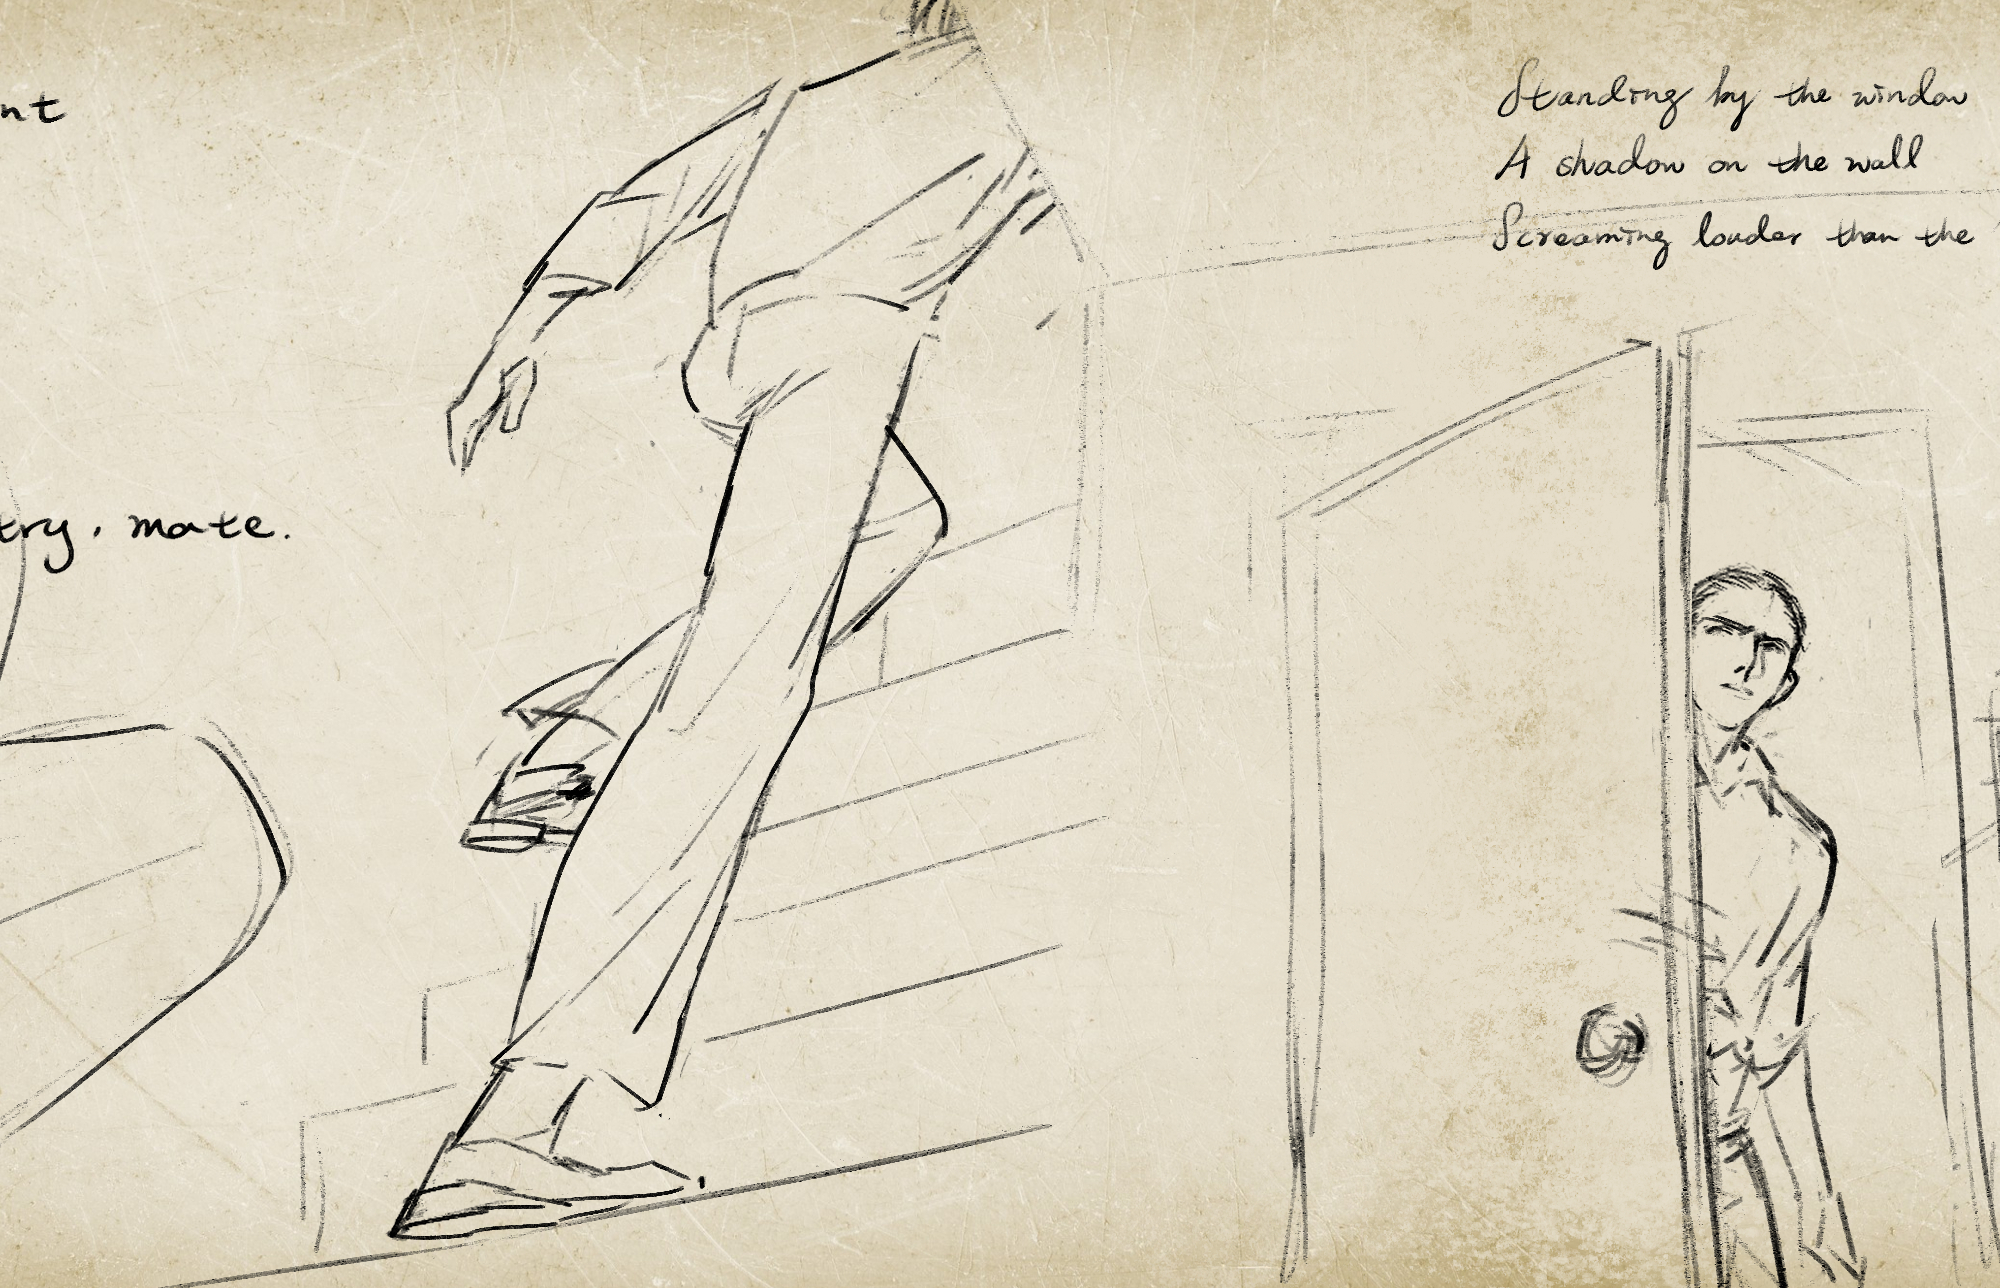 nt
try, mate.
Standing by the window
A shadow on the wall
Screaming louder than the